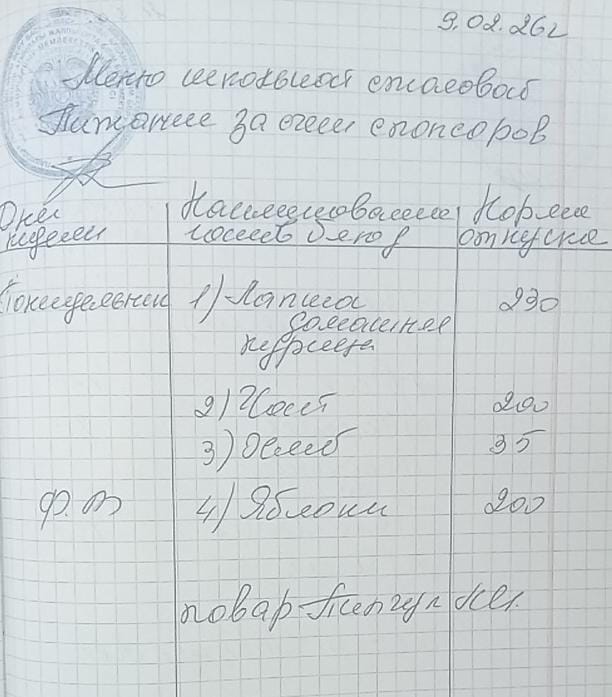 9.02.26г
Меню школьной столовой
Питание за счет спонсоров
Дни недели
Наименование блюд
Норма отпуска
Понедельник 1) Лапша 230
домашняя
курица
2) Чай 200
3) Хлеб 35
4) Яблоки 200
повар